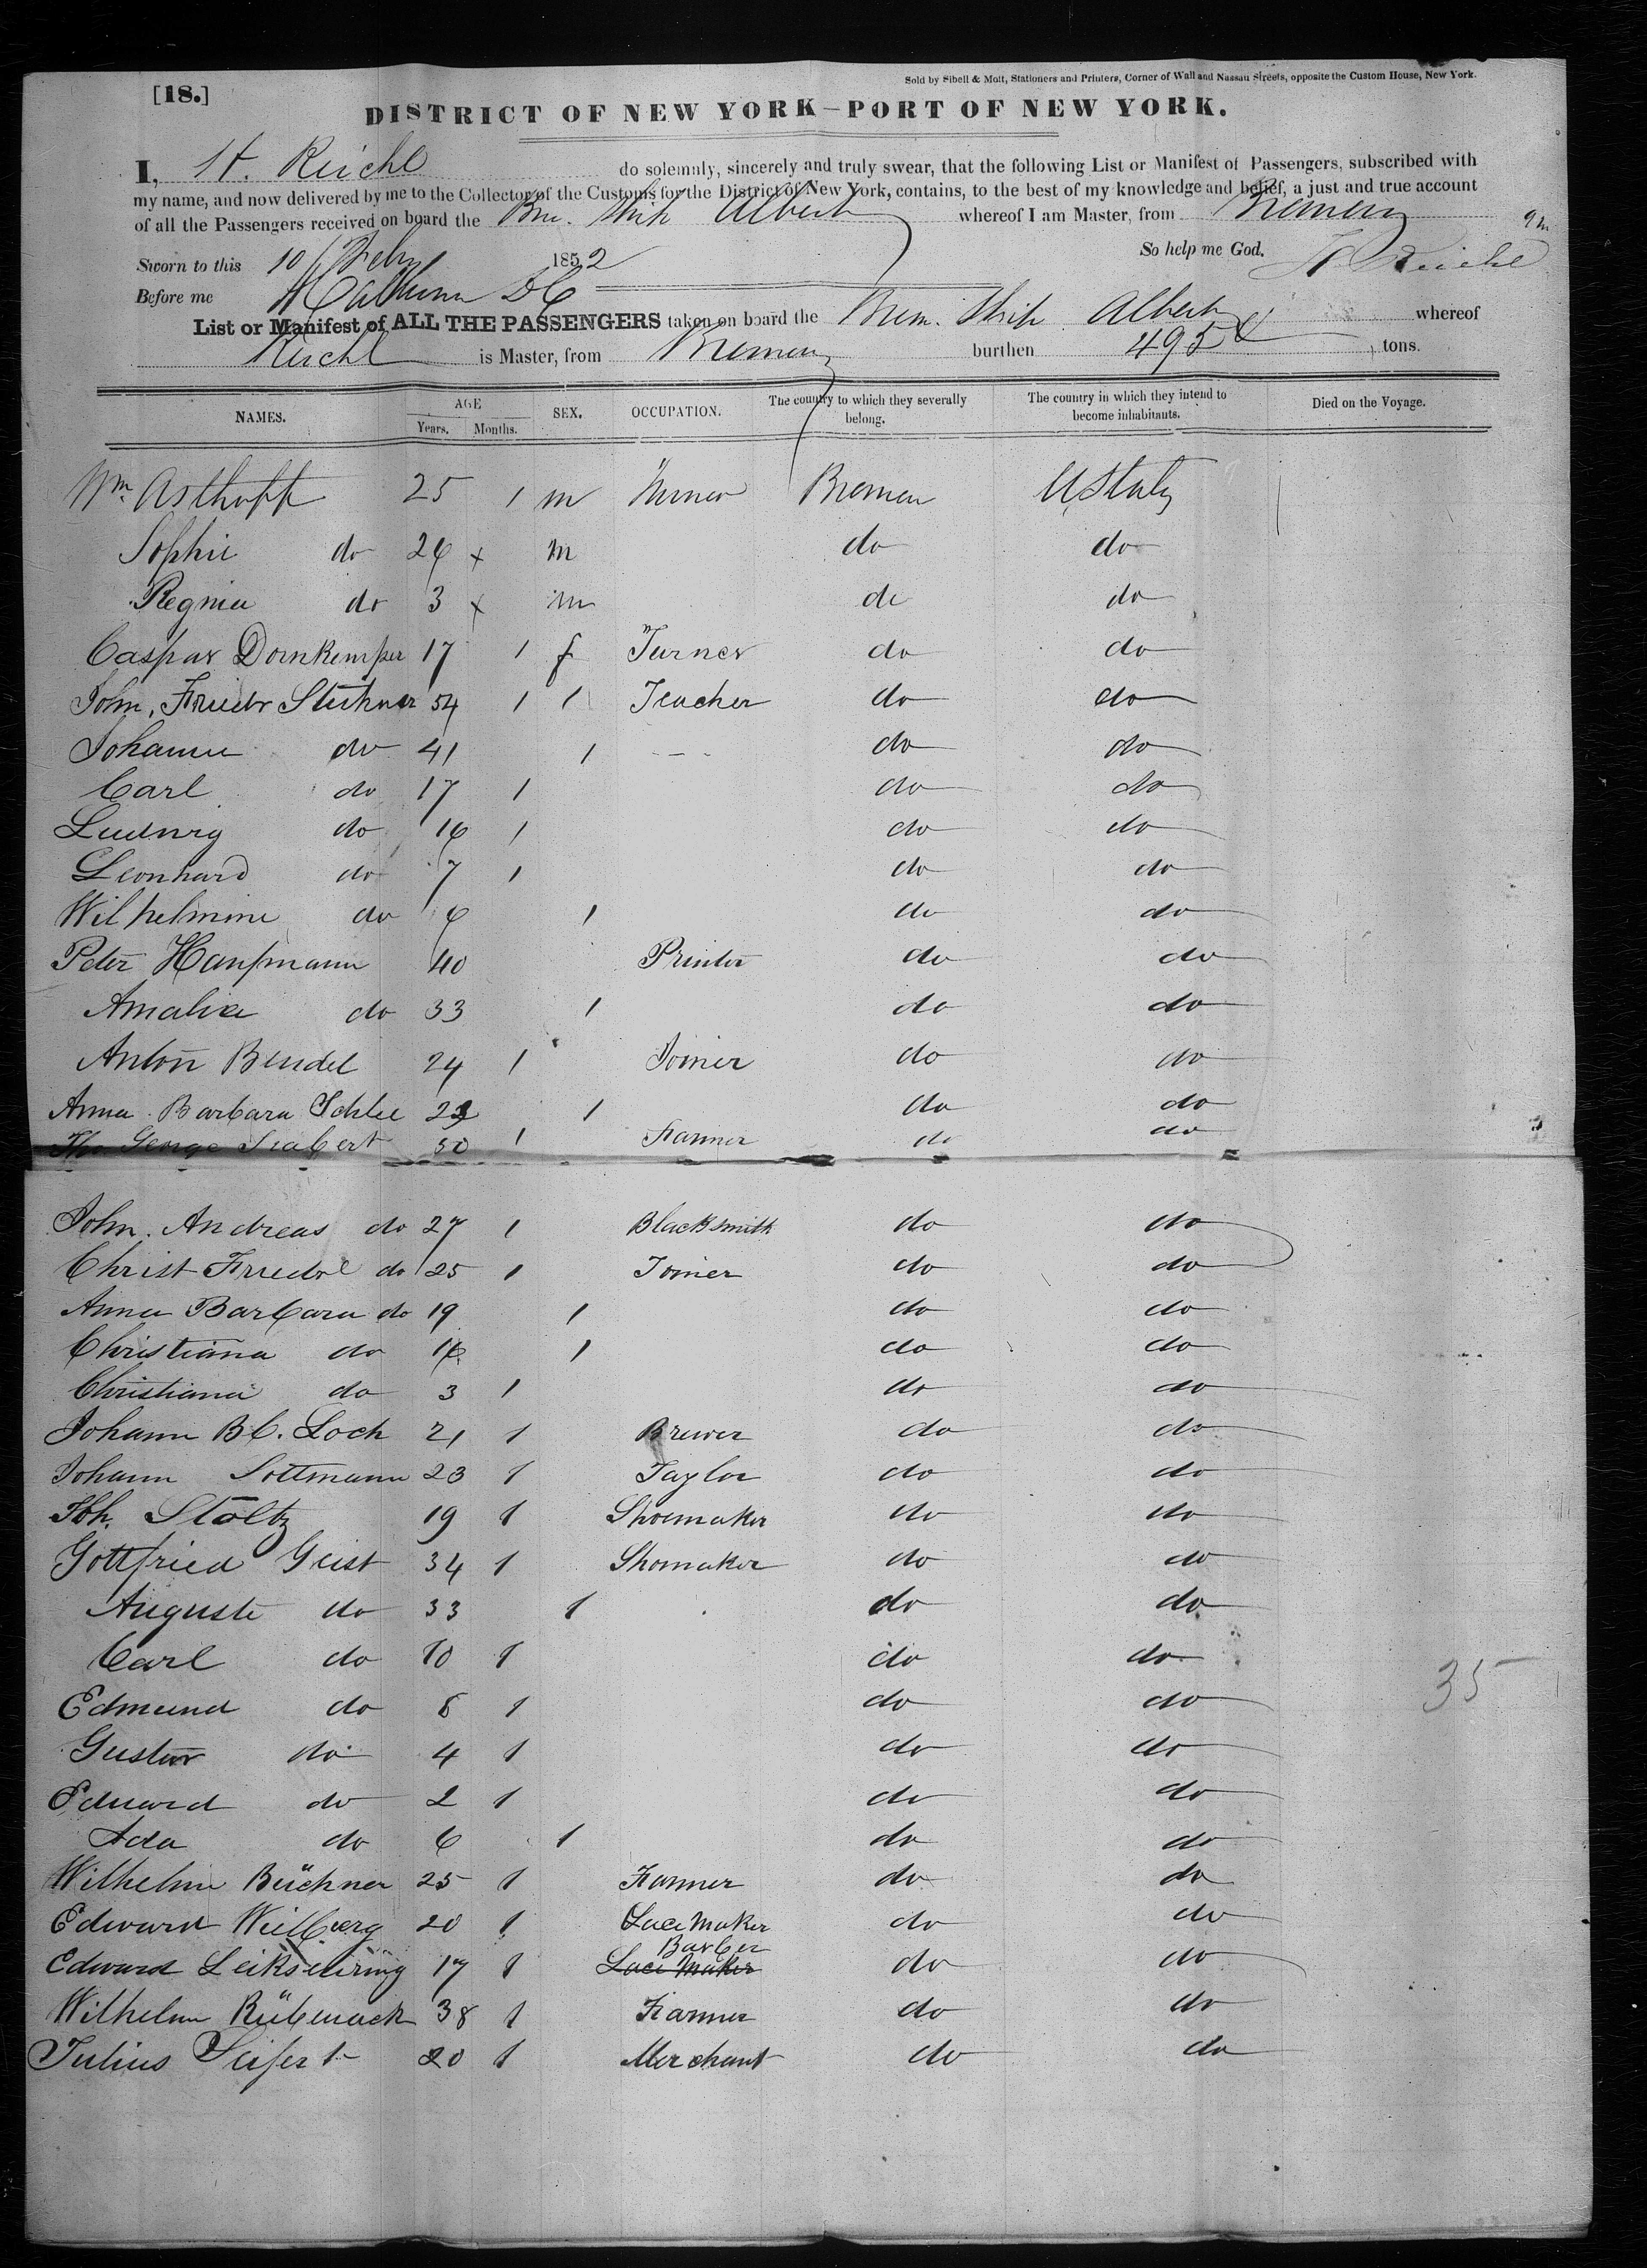 Sold by Sibell & Mott, Stationers and Printers, Corner of Wall and Nassau Streets, opposite the Custom House, New York.
[18.]
DISTRICT OF NEW YORK—PORT OF NEW YORK.
I, H. Reichl do solemnly, sincerely and truly swear, that the following List or Manifest of Passengers, subscribed with
my name, and now delivered by me to the Collector of the Customs for the District of New York, contains, to the best of my knowledge and belief, a just and true account
of all the Passengers received on board the Bm. Ship Albert whereof I am Master, from Bremen
So help me God.
Sworn to this 10 Feby 1852 H Reichl
Before me
List or Manifest of ALL THE PASSENGERS taken on board the Brem. Ship Albert whereof
Reichl is Master, from Bremen burthen 495 tons.
NAMES. AGE Years. Months. SEX. OCCUPATION. The country to which they severally belong. The country in which they intend to become inhabitants. Died on the Voyage.
Wm. Asthopp 25 1 m Turner Bremen UStates
Sophie do 26 x m do do
Regina do 3 x m do do
Caspar Dornkemper 17 1 f Turner do do
John, Friedr 54 1 1 Teacher do do
Johanne do 41 1 do do
Carl do 17 1 do do
Ludwig do 16 1 do do
Leonhard do 7 1 do do
Wilhelmine do 6 1 do do
Peter Haupmann 40 Printer do do
Amalia do 33 1 do do
Anton Bendel 24 1 Joiner do do
Anna Barbara Schlee 1 do do
George Siabert 50 1 Farmer do do
John. Andreas do 27 1 Blacksmith do do
Christ Friedr do 25 1 Joiner do do
Anna Barbara do 19 1 do do
Christiana do 16 1 do do
Christiana do 3 1 do do
Johann B C. Loch 21 1 Brewer do do
Johann Sottmann 23 1 Taylor do do
Joh. Stoltz 19 1 Shoemaker do do
Gottfried Geist 34 1 Shomaker do do
Auguste do 33 1 do do
Carl do 10 1 do do
35
Edmund do 8 1 do do
Gustav do 4 1 do do
Eduard do 2 1 do do
Ada do 6 1 do do
Wilhelm Büchner 25 1 Farmer do do
Edward Weilberg 20 1 Lace Maker do do
Barber
Edward Leiksenring 17 1 Lace Maker do do
Wilhelm Rübenack 38 1 Farmer do do
Julius Seifert 20 1 Merchant do do